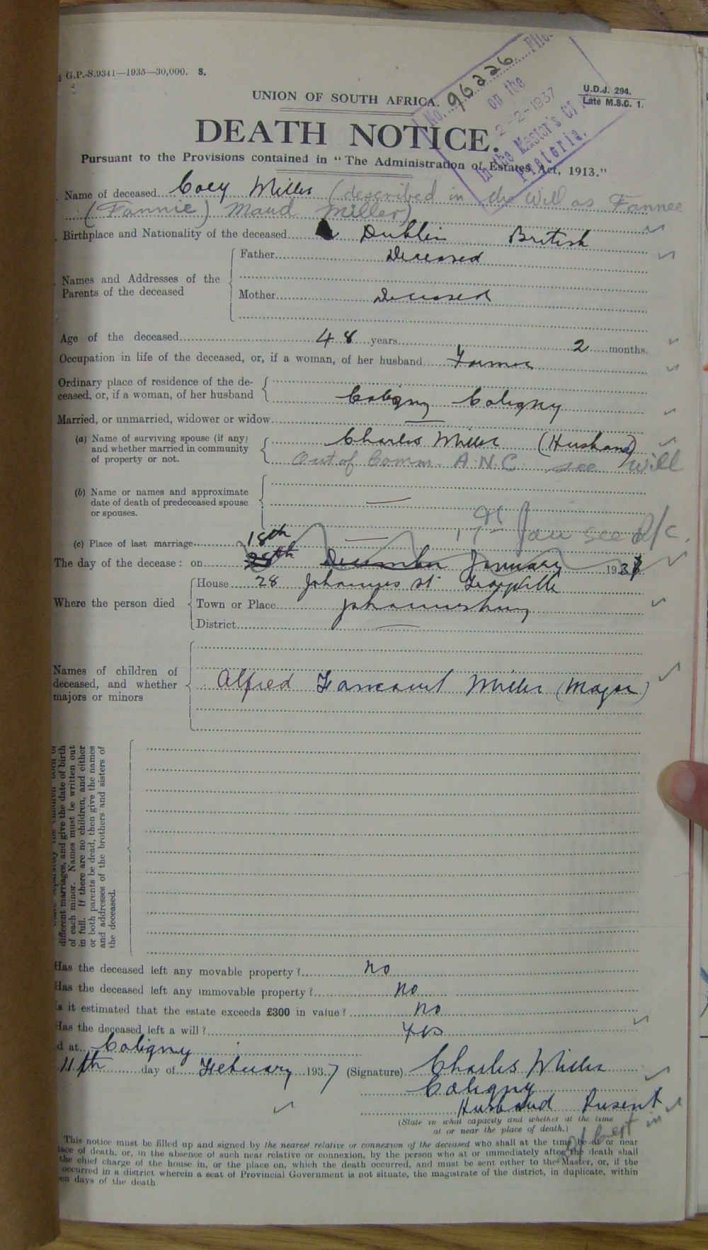 G.P.-S.9341—1935—30,000. S.
No. 96226 File
on the
2-2-1937
In the Master's Of
Pretoria.
U.D.J. 294.
Late M.S.C. 1.
UNION OF SOUTH AFRICA.
DEATH NOTICE.
Pursuant to the Provisions contained in "The Administration of Estates Act, 1913."
Name of deceased Coey Miller (described in the Will as Fannee
(Fannie) Maud Miller)
Birthplace and Nationality of the deceased Dublin British
Names and Addresses of the Parents of the deceased
Father Deceased
Mother Deceased
Age of the deceased 48 years 2 months.
Occupation in life of the deceased, or, if a woman, of her husband Farmer
Ordinary place of residence of the de-
ceased, or, if a woman, of her husband Coligny Coligny
Married, or unmarried, widower or widow
(a) Name of surviving spouse (if any)
and whether married in community
of property or not.
Charles Miller (Husband)
Out of Comm. A N C see Will
(b) Name or names and approximate
date of death of predeceased spouse
or spouses. —
(c) Place of last marriage —
17th Jan see D/c.
The day of the decease: on 18th December January 1937
Where the person died
House 28 Johannes St
Town or Place Johannesburg
District —
Names of children of
deceased, and whether
majors or minors
Alfred Miller (Major)
different marriages, and give the date of birth
of each minor. Names must be written out
in full. If there are no children, and either
or both parents be dead, then give the names
and addresses of the brothers and sisters of
the deceased.
Has the deceased left any movable property? no
Has the deceased left any immovable property? no
Is it estimated that the estate exceeds £300 in value? no
Has the deceased left a will? Yes
d at Coligny
11th day of February 1937 (Signature) Charles Miller
Coligny
Husband Present
(State in what capacity and whether at the time
at or near the place of death.)
This notice must be filled up and signed by the nearest relative or connexion of the deceased who shall at the time be at or near
place of death, or, in the absence of such near relative or connexion, by the person who at or immediately after the death shall
the chief charge of the house in, or the place on, which the death occurred, and must be sent either to the Master, or, if the
occurred in a district wherein a seat of Provincial Government is not situate, the magistrate of the district, in duplicate, within
en days of the death